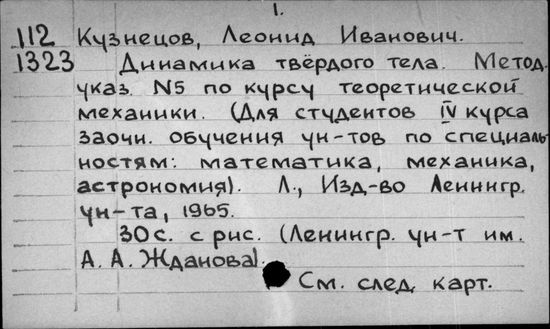 1.
112 Кузнецов, Леонид Иванович.
1323 Динамика твёрдого тела. Метод.
указ. N5 по курсу теоретической
механики. (Для студентов IV курса
заочн. обучения ун-тов по специаль-
ностям: математика, механика,
астрономия). Л., Изд-во Ленингр.
ун-та, 1965.
30 с. с рис. (Ленингр. ун-т им.
А. А. Жданова).
См. след. карт.